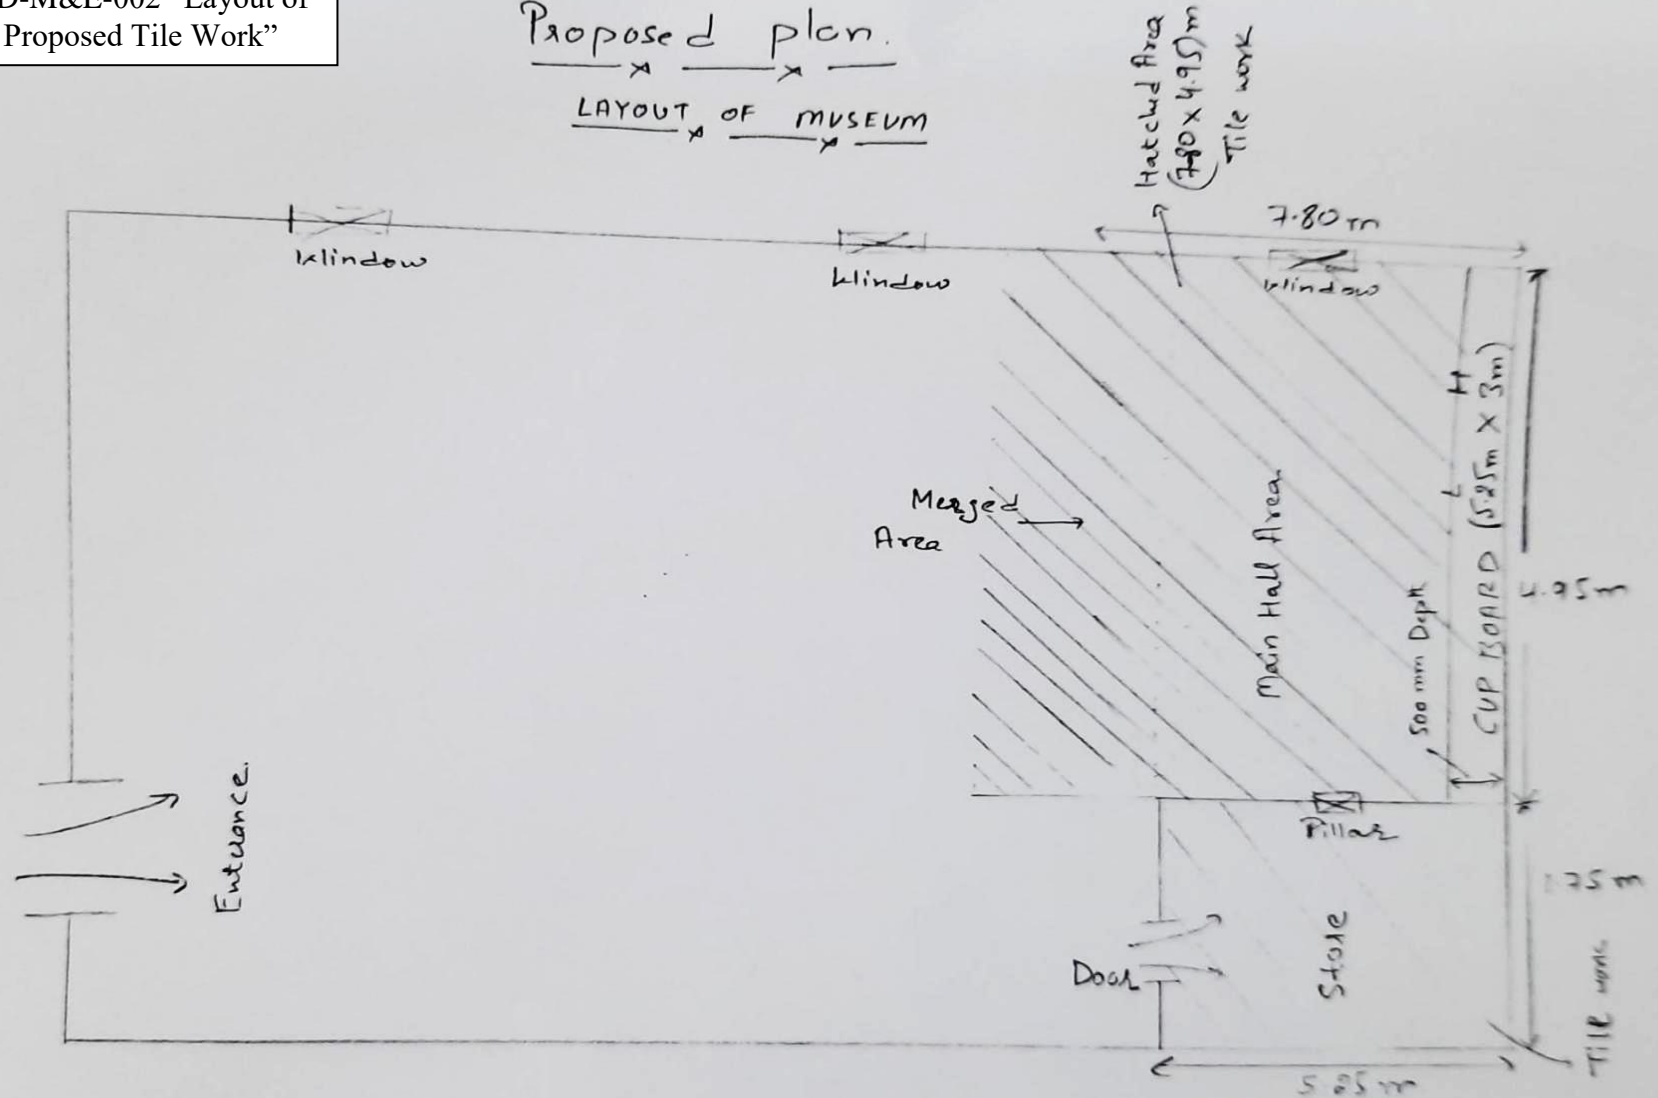 D-M&E-002 "Layout of
Proposed Tile Work"
Proposed plan.
LAYOUT OF MUSEUM
Hatched Area
(7.80 x 4.95)m
Tile work
7.80 m
Window
Window
Window
Merged
Area
Main Hall Area
500 mm Depth
L
H
CUP BOARD (5.25m X 3m)
4.95m
Entrance.
Pillar
Door
Store
.75 m
Tile work
5.25 m